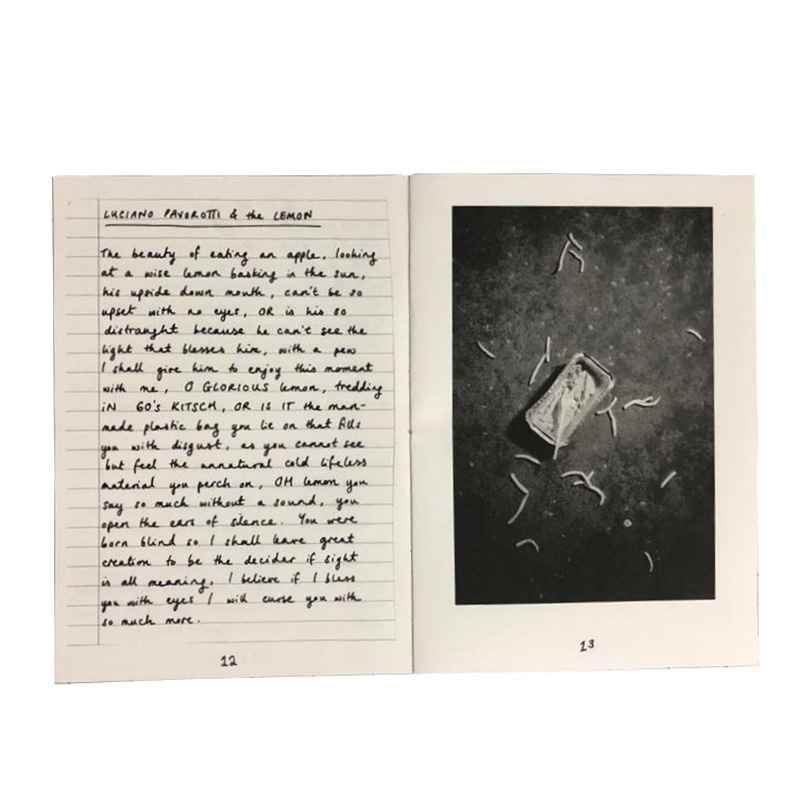 LUCIANO PAVOROTTI & the LEMON
The beauty of eating an apple, looking
at a wise lemon basking in the sun,
his upside down mouth, can't be so
upset with no eyes, OR is his so
distraught because he can't see the
light that blesses him, with a pen
I shall give him to enjoy this moment
with me, O GLORIOUS lemon, tredding
iN 60's KITSCH, OR IS IT the man-
made plastic bag you lie on that fills
you with disgust, as you cannot see
but feel the unnatural cold lifeless
material you perch on, OH lemon you
say so much without a sound, you
open the ears of silence. You were
born blind so I shall leave great
creation to be the decider if sight
is all meaning, I believe if I bless
you with eyes I will curse you with
so much more.
12
13